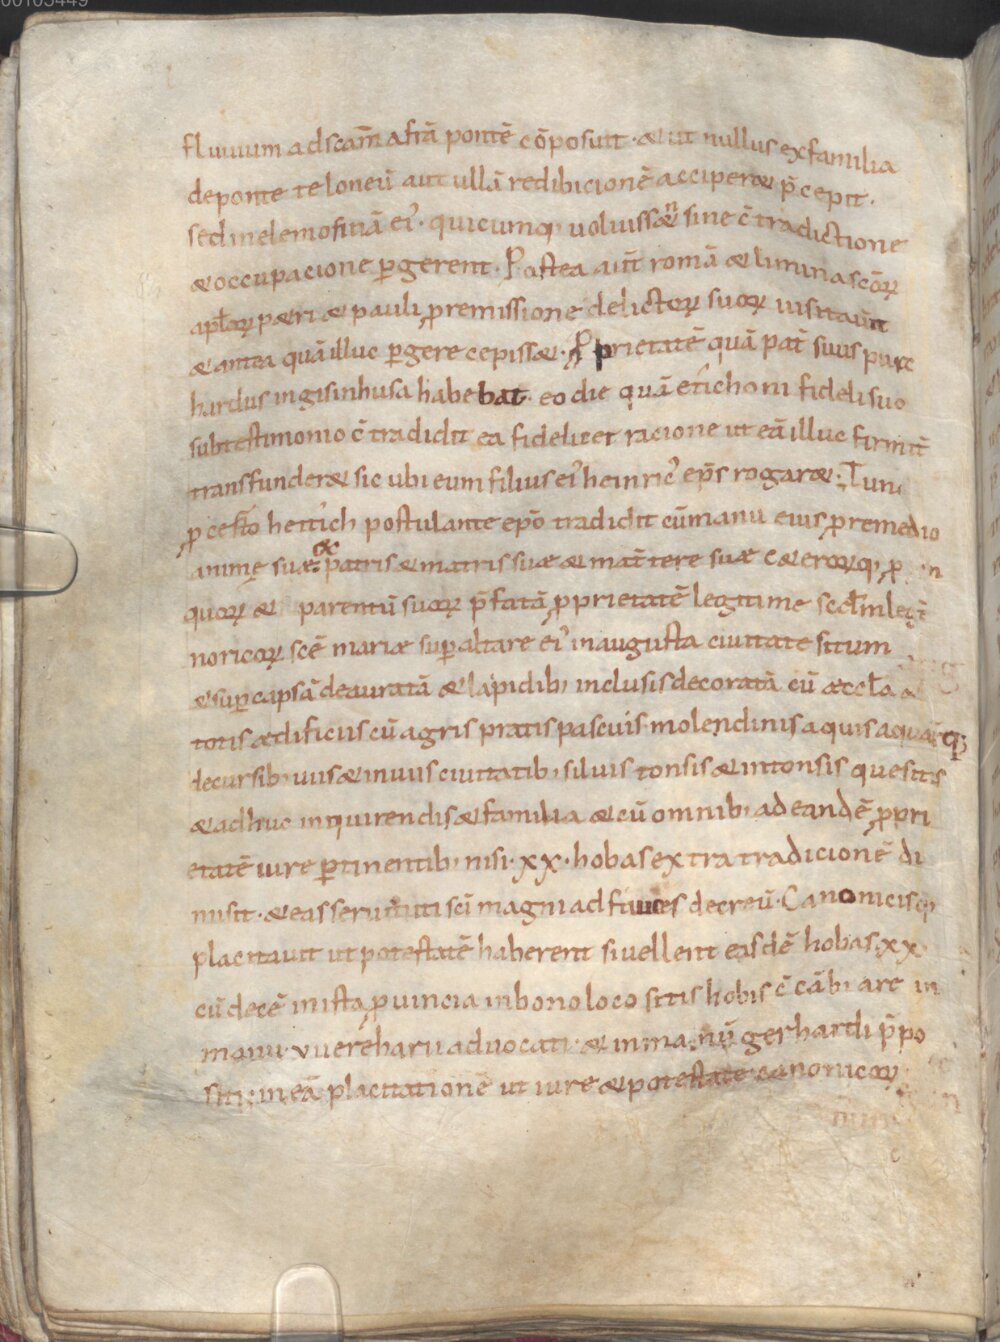 00105449
fluuium ad scam̄ afrā pontē cōposuit · & ut nullus exfamilia
deponte teloneū aut ullā redibicionē acciper& p̄cepit ·
sed inelemosinā ei᾽ · quicumq; uoluiss&ⁿ sine c̄tradictione
& occupacione ꝑgerent · Postea aut̄ romā & limina scōꝝ
apl̄oꝝ p&ri & pauli ꝓremissione delictoꝝ suoꝝ uisitauit
& antea quā illuc ꝑgere cepiss& · Prietatē quā pat̄ suus purc
hardus ingisinhusa habebat · eo die quā etichoni fideli suo
subtestimonio c̄tradidit ea fidelitet racione ut eā illuc firmit̄
transfunder& sic ubi eum filius ei᾽ heinric᾽ ep̄s rogar& · Tunc
ꝓcesto hettich postulante epō tradidit cūmanu eius ꝓremedio
animę suę & patris & matris suæ & mat̄tere suæ c&eroꝝq; ꝓ in
quoꝝ & parentū suoꝝ p̄fatā ꝓprietatē legitime scdm̄ legē
noricoꝝ scē mariæ suꝑaltare ei᾽ inaugusta ciuitate situm
& suꝑ capsā deauratā & lapidib; inclusis decoratā cū æccl̄a
toris ædificiis cū agris pratis pascuis molendinis aquis aquarūq;
decursib; uiis & inuiis ciuitatib; siluis tonsis & intonsis quesitis
& adhuc inquirendis & familia & cū omnib; ad eandē ꝓpri
etatē iure ꝑtinentib; nisi · xx · hobas extra tradicionē di
misit · & eas seruituti sci magni ad fauces decreū · Canonicis q;
placitauit ut potestatē haberent si uellent easdē hobas xx
cū decē inista ꝓuincia inbono loco sitis hobis c̄cābiare in
manu · vuereharii aduocati · & inmanū gerhardi p̄po
siti; in eā placitationē ut iure & potestate canonicoꝝ